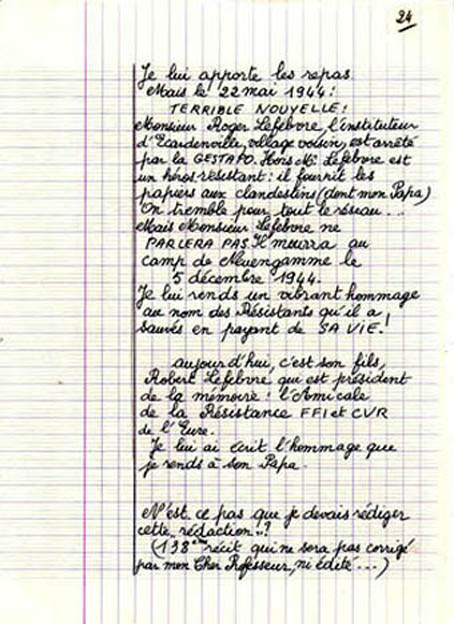 24
Je lui apporte les repas.
Mais le 22 mai 1944:
TERRIBLE NOUVELLE!
Monsieur Roger Lefebvre l'instituteur
d'Ecardenville, village voisin, est arrêté
par la GESTAPO. Hors Mr Lefebvre est
un héros-résistant: il fournit les
papiers aux clandestins (dont mon Papa)
On tremble pour tout le réseau...
Mais Monsieur Lefebvre ne
PARLERA PAS. Il mourra au
camp de Neuengamme le
5 décembre 1944.
Je lui rends un vibrant hommage
au nom des Résistants qu'il a
sauvés en payant de SA VIE!
aujourd'hui, c'est son fils,
Robert Lefebvre qui est président
de la mémoire: l'Amicale
de la Résistance FFI et CVR
de l'Eure.
Je lui ai écrit l'hommage que
je rends à son Papa.
N'est ce pas que je devais rédiger
cette rédaction..?
(138ème récit qui ne sera pas corrigé
par mon Cher Professeur, ni édité...)